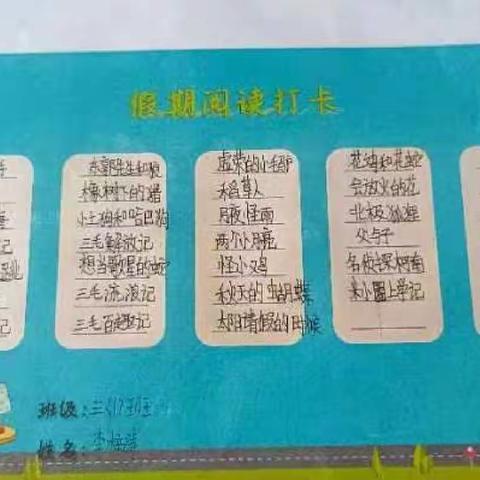 假期阅读打卡
东郭先生和狼
橡树下的猪
小土狗和哈巴狗
三毛解放记
想当歌星的蛇
三毛流浪记
三毛百趣记
虚荣的小毛驴
稻草人
月夜怪雨
两个小月亮
怪小鸡
秋天的蝴蝶
太阳请假的时候
花姑和花蛇
会放火的花
北极狐狸
父与子
名侦探柯南
米小圈上学记
记
记
班级:三(1)班
姓名:李